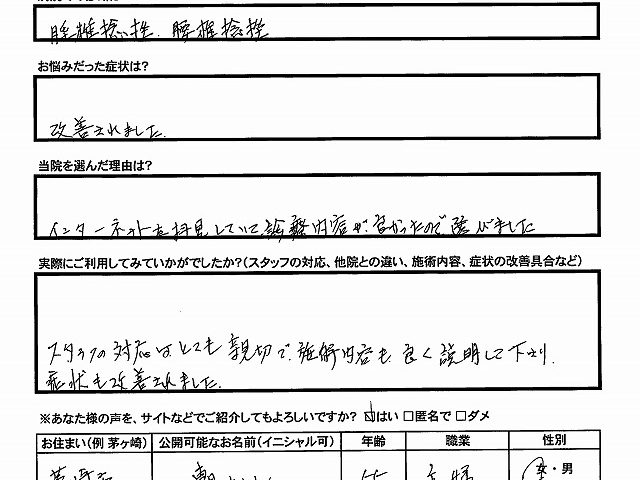 腰椎捻挫、腰椎捻挫
お悩みだった症状は?
改善されました。
当院を選んだ理由は?
インターネットを拝見していて診療内容が良かったので選びました
実際にご利用してみていかがでしたか?(スタッフの対応、他院との違い、施術内容、症状の改善具合など)
スタッフの対応はとても親切で、施術内容も良く説明して下さり、
症状も改善されました。
※あなた様の声を、サイトなどでご紹介してもよろしいですか? ☑はい □匿名で □ダメ
お住まい(例 茅ヶ崎) 公開可能なお名前(イニシャル可) 年齢 職業 性別
女・男